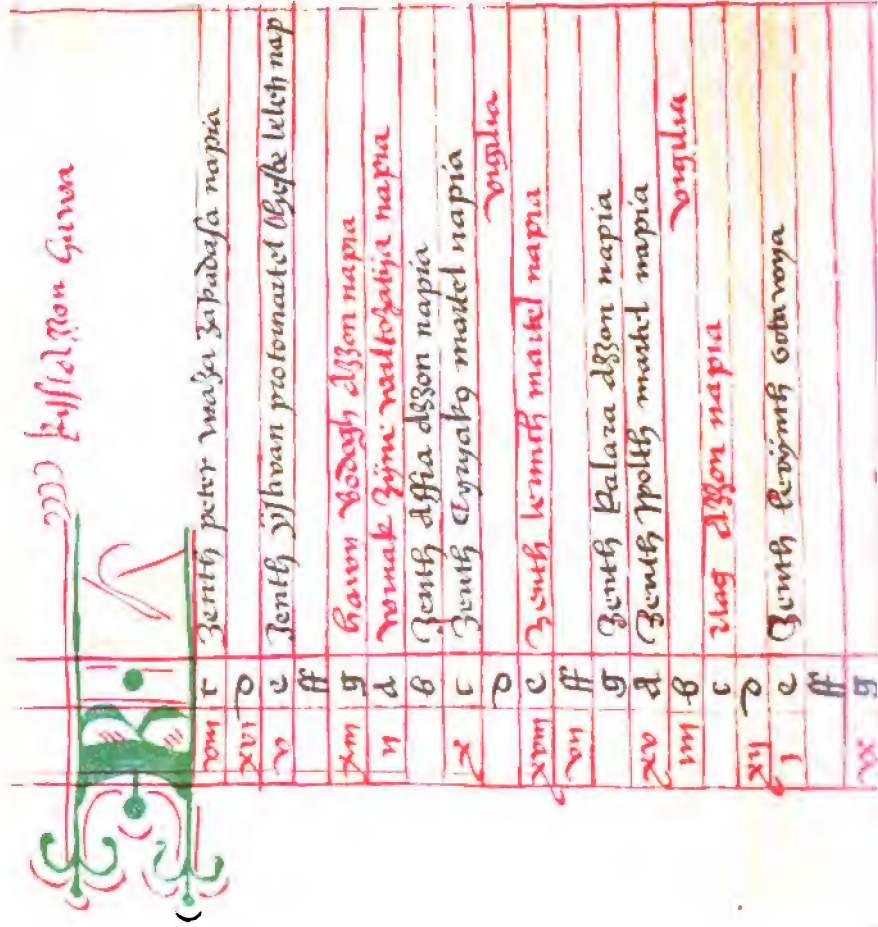 kyssazzon hawa
viii c Zenth peter vaza zakadasa napia
xvi d
v e Zenth ystwan protomartel teste leleth nap
ff
xiii g hawon bodogh azzon napia
ii a vronak zyne valtozatya napia
b Zenth affra azzon napia
x c Zenth Cyryako martel napia
d vigilia
xviii e Zenth lerinth martel napia
vii ff
g Zenth kalara azzon napia
xv a Zenth ypolth martel napia
iiii b vigilia
c nag azzon napia
xii d
i e Zenth
ff
ix g